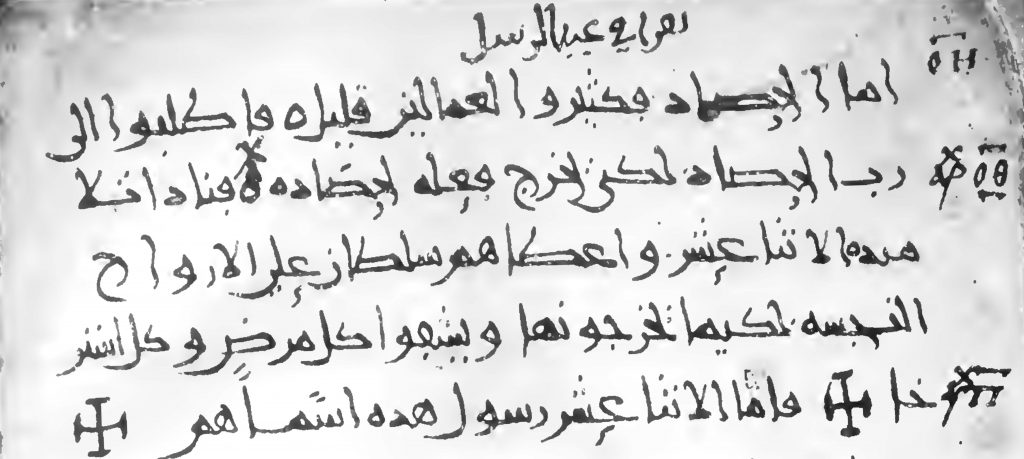 تقرا في عيد الرسل
اما الحصاد فكثير والعمالين قليله فاطلبوا الى
ΟΗ
رب الحصاد لكي يخرج فعله لحصاده فنادا تلا
ΟΘ
ميذه الاثنا عشر واعطاهم سلطان على الارواح
النجسه لكيما يخرجونها ويشفوا كل مرض وكل استر
خا ✠ فاما الاثنا عشر رسول هذه اسماهم ✠